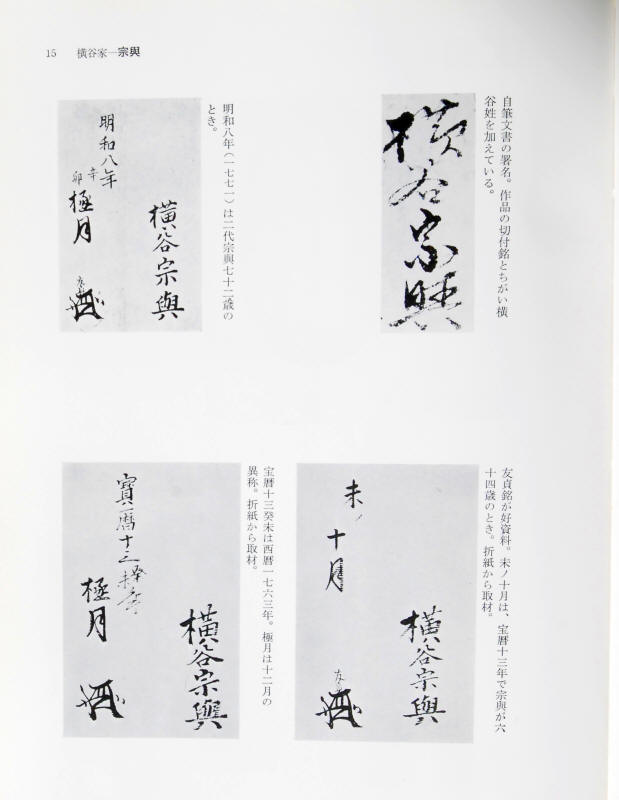 15　横谷家—宗與
自筆文書の署名。作品の切付銘とちがい横
谷姓を加えている。
横谷宗與
明和八年（一七七一）は二代宗與七十二歳の
とき。
明和八年
辛
卯
極月
横谷宗與
友貞銘が好資料。未ノ十月は、宝暦十三年で宗與が六
十四歳のとき。折紙から取材。
未ノ
十月
横谷宗與
宝暦十三癸未は西暦一七六三年。極月は十二月の
異称。折紙から取材。
寳暦十三
極月
横谷宗與